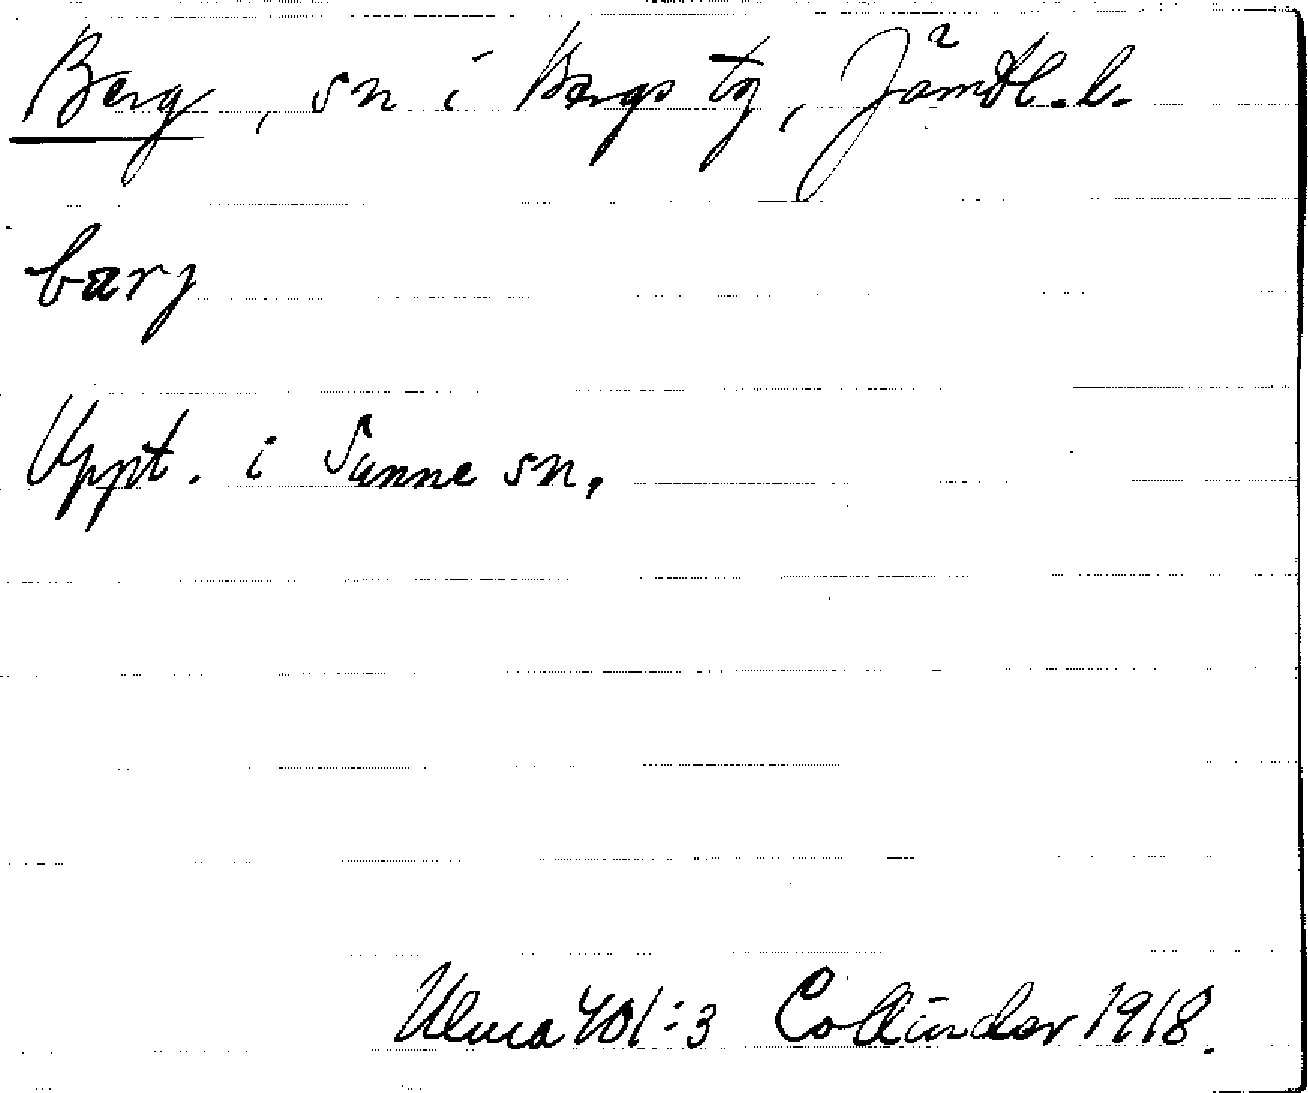 Berg, sn i Bergs tg, Jämtl. l.
bærj
Uppt. i Sunne sn.
Ulma 401:3 Collinder 1918.